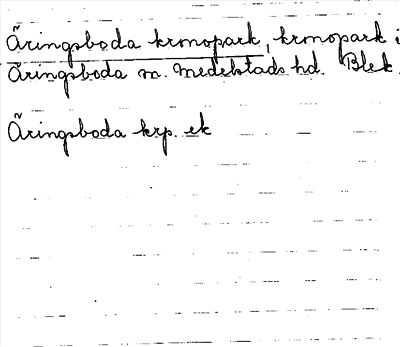 Äringsboda kronopark, kronopark i
Äringsboda sn. Medelstads hd. Blek.
Äringsboda krp. ek